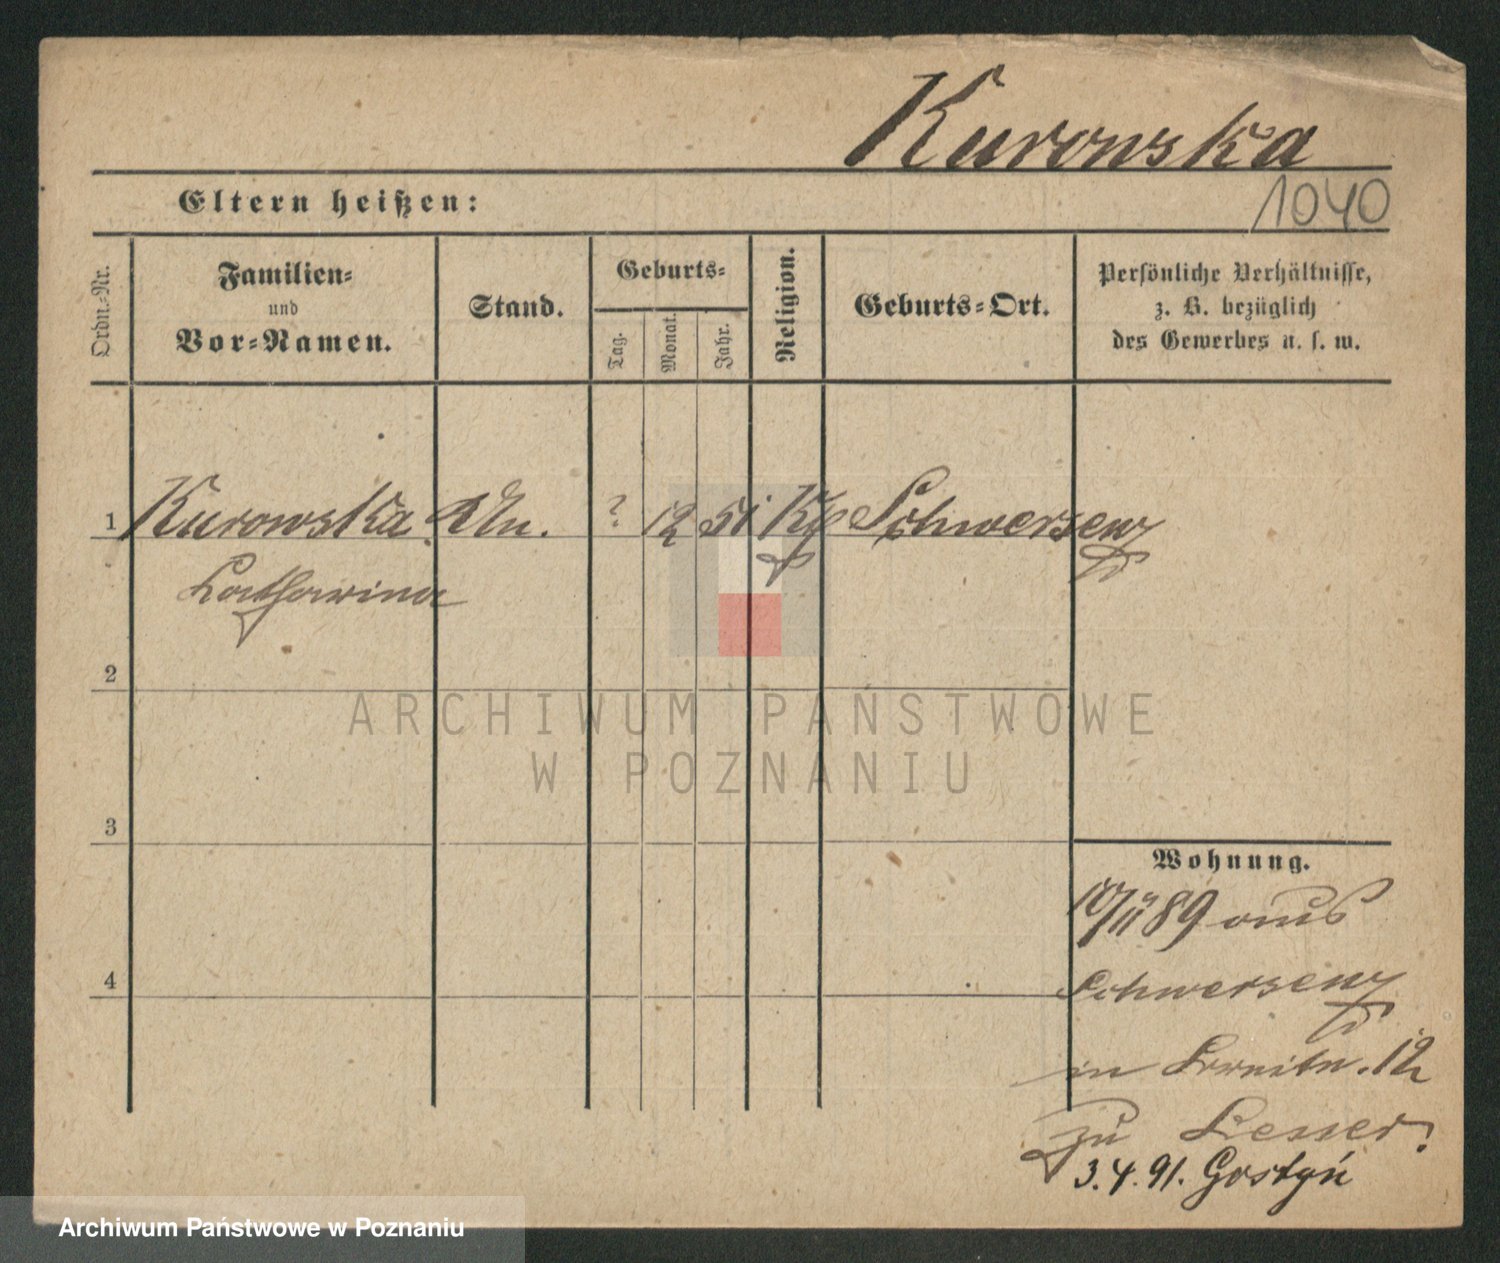 Kurowska
Eltern heißen:
1040
Ordn.-Nr.
Familien-
und
Vor-Namen.
Stand.
Geburts-
Tag.
Monat.
Jahr.
Religion.
Geburts-Ort.
Persönliche Verhältnisse,
z. B. bezüglich
des Gewerbes u. s. w.
1 Kurowska ? 12 51 Schwersenz
Catharina
2
3
4
ARCHIWUM PAŃSTWOWE
W POZNANIU
Wohnung.
10/11 89 aus
Schwersenz
in 12
zu Lesser.
3.4.91. Gostyń
Archiwum Państwowe w Poznaniu